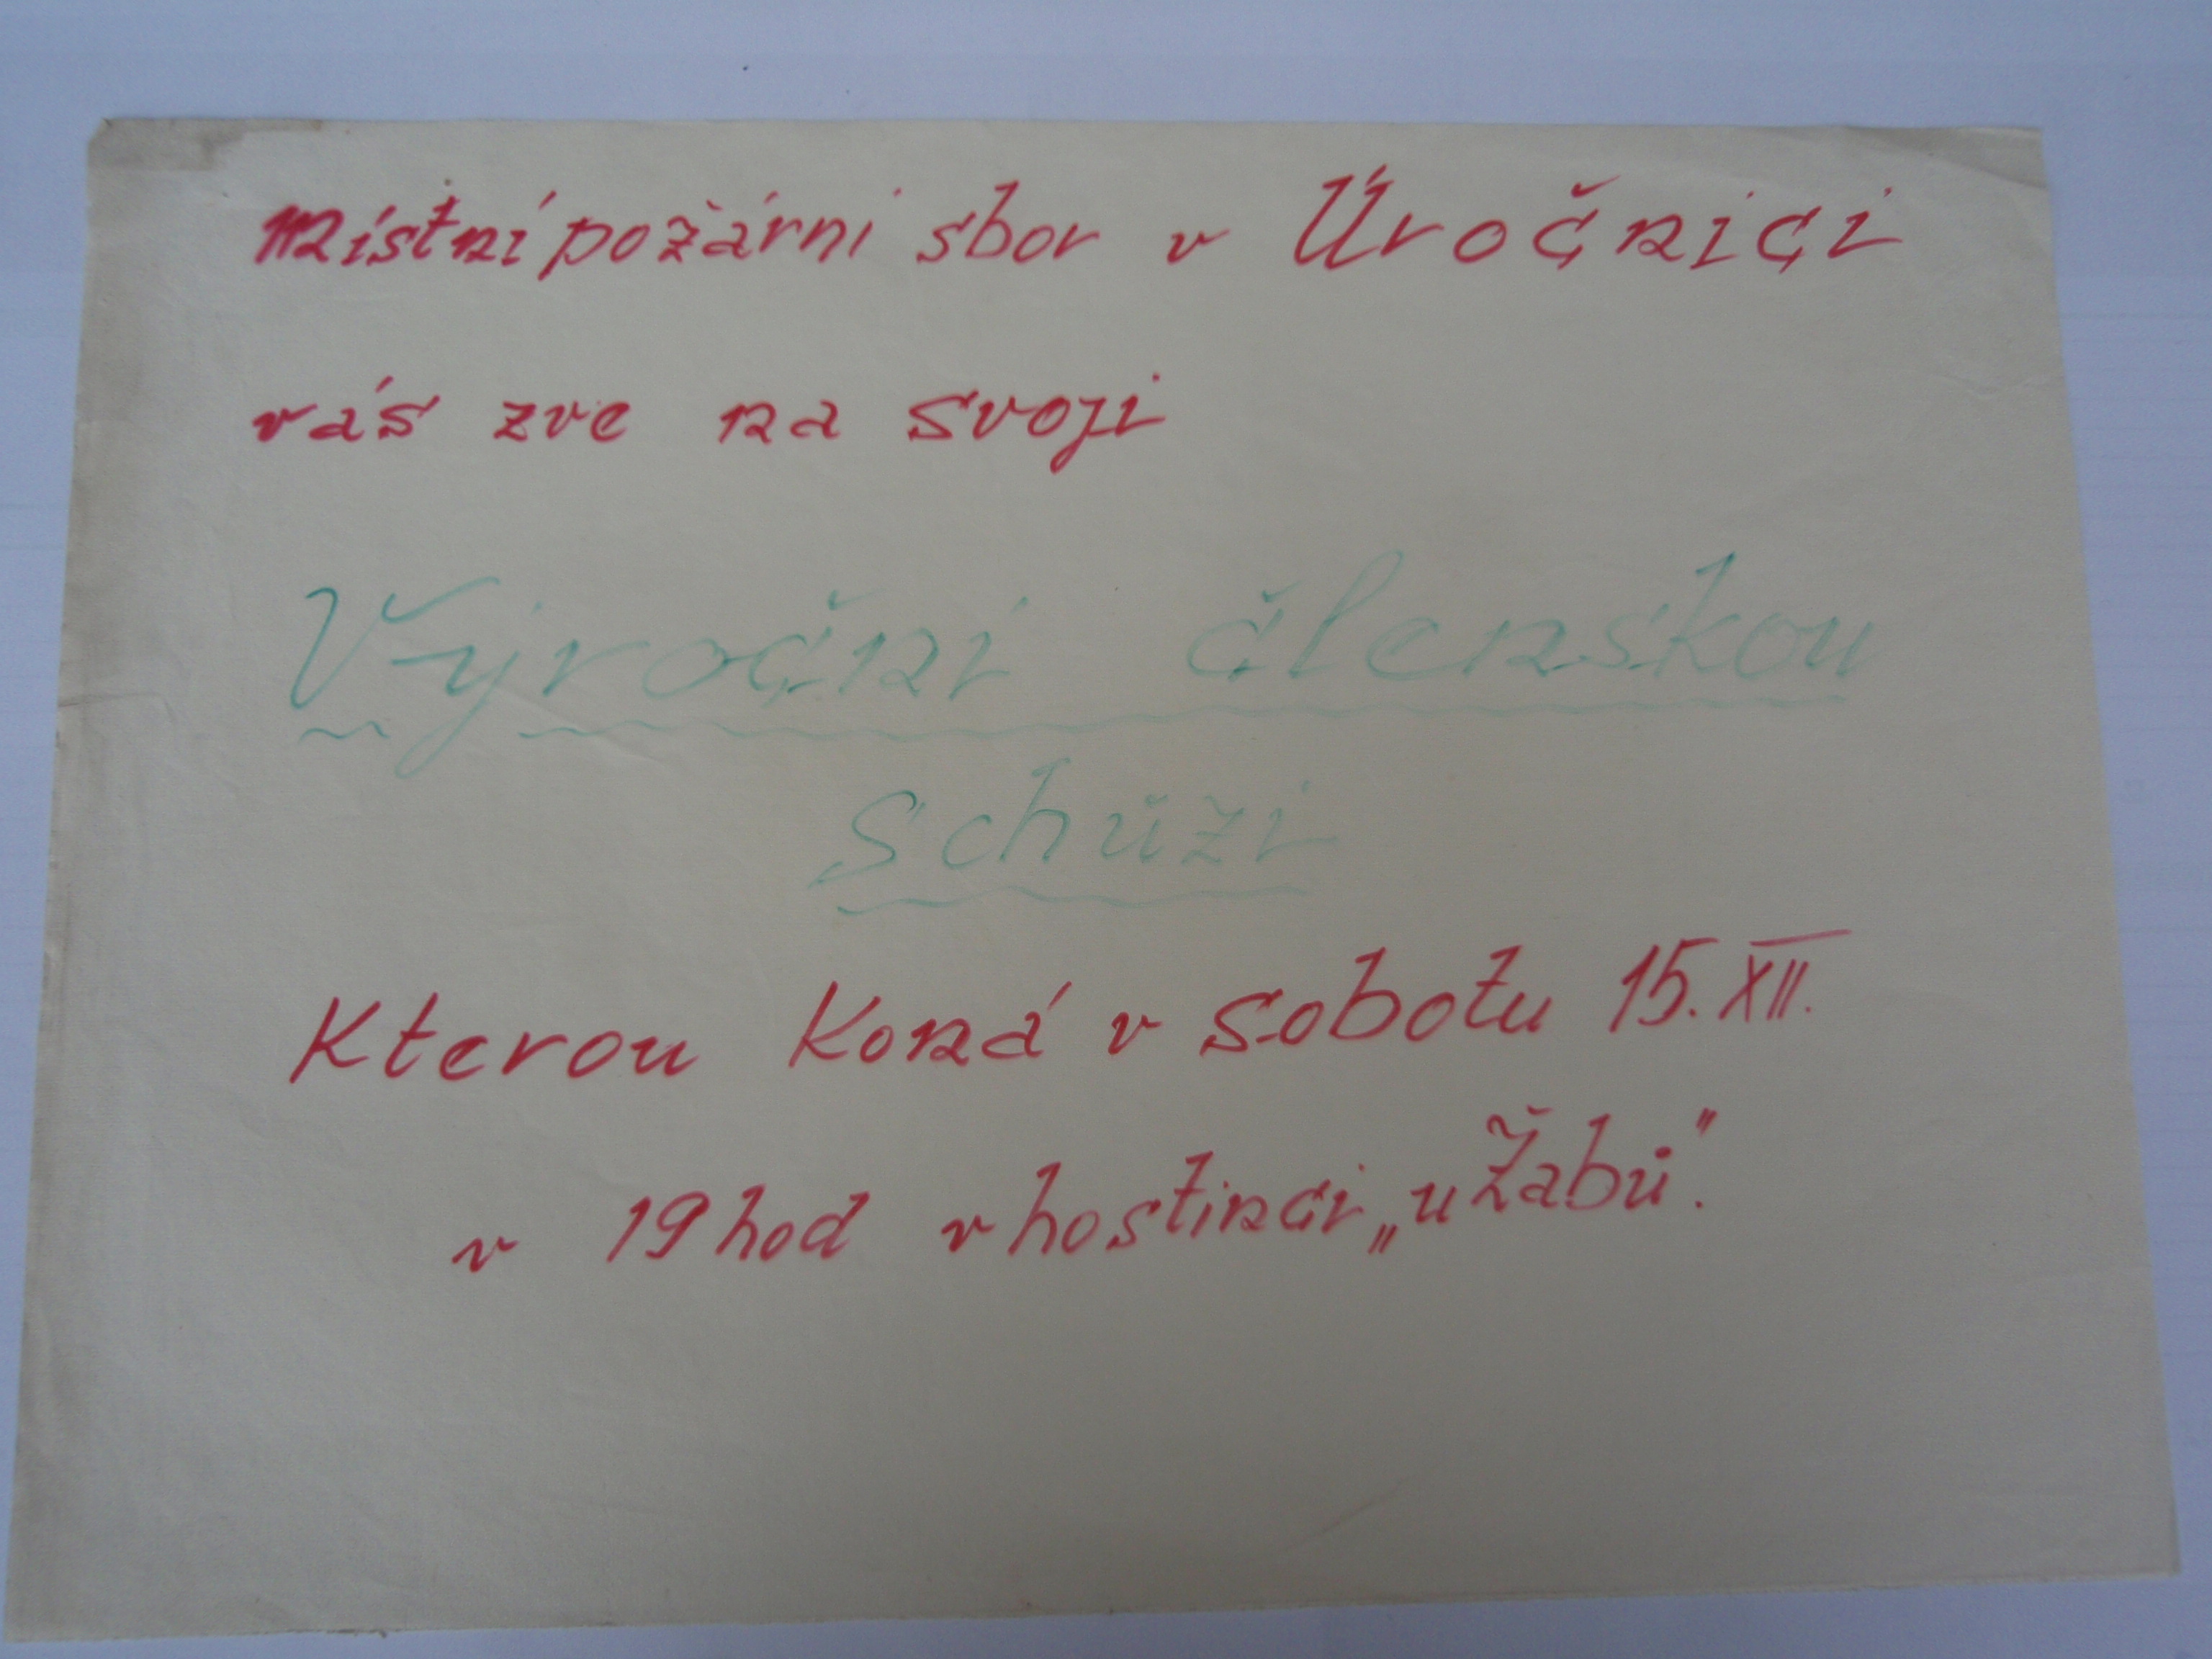 Místní požární sbor v Úročnici
vás zve na svoji
Výroční členskou
schůzi
Kterou Koná v sobotu 15. XII.
v 19 hod v hostinci „u Žabů".